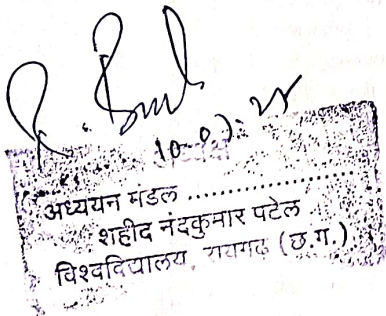 10-07-25
अध्ययन मंडल ..............................
शहीद नंदकुमार पटेल
विश्वविद्यालय, रायगढ़ (छ.ग.)